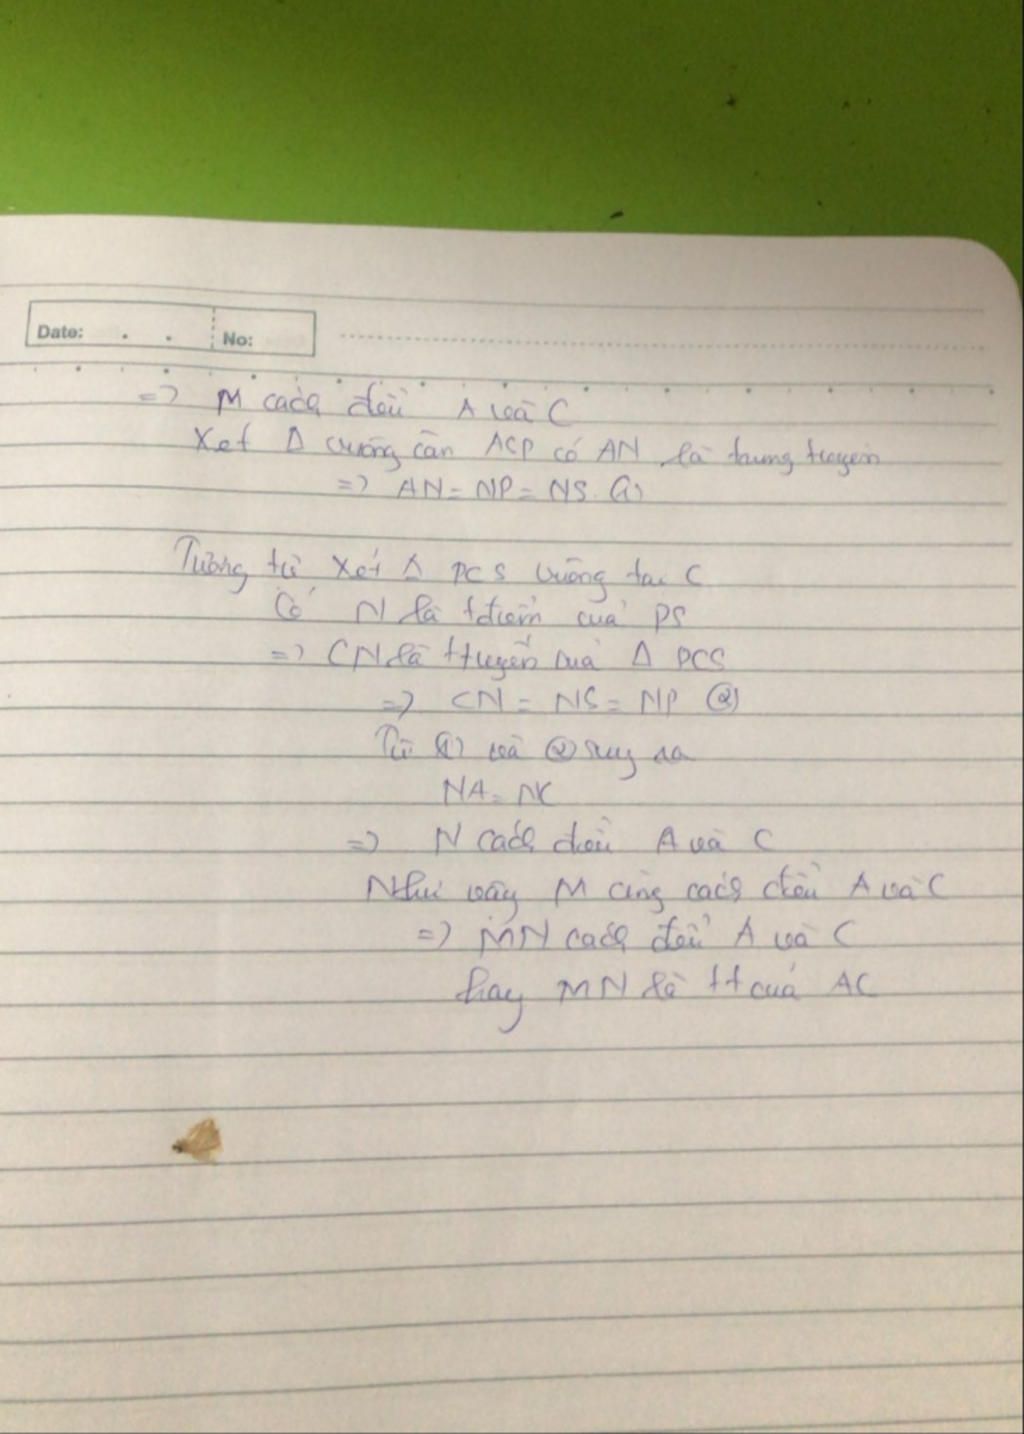 Date: . . No:
=> M cách đều A và C
Xét Δ vuông cân ACP có AN là trung tuyến
=> AN = NP = NS. (1)
Tương tự xét Δ PCS vuông tại C
Có N là tđiểm của PS
=> CN là ttuyến của Δ PCS
=> CN = NS = NP (2)
Từ (1) và (2) suy ra
NA = NC
=> N cách đều A và C
Như vậy M cũng cách đều A và C
=> MN cách đều A và C
hay MN là tt của AC